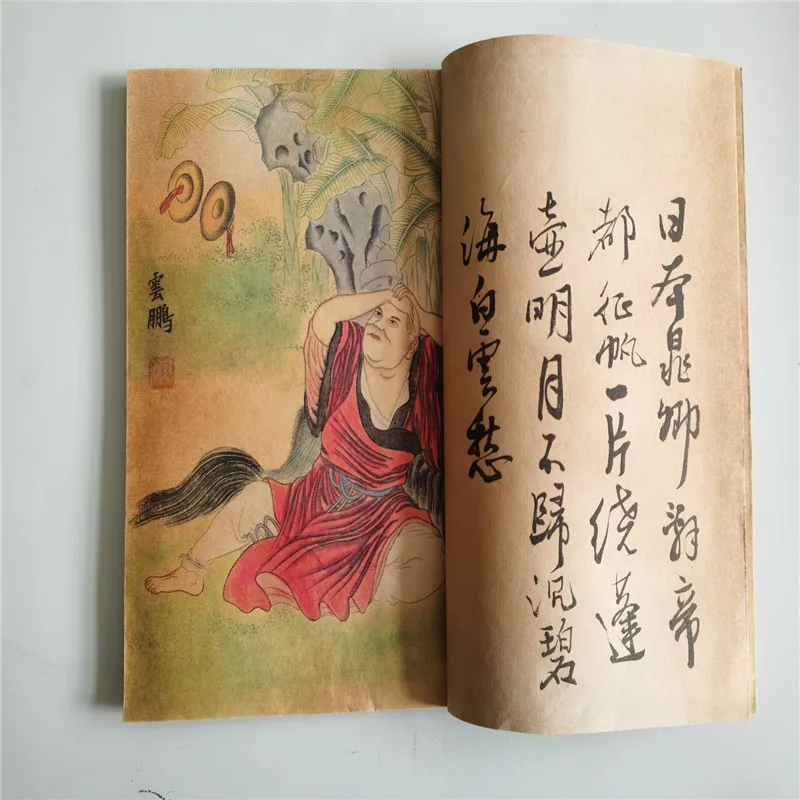 日本晁卿辭帝
都征帆一片绕蓬
壺明月不歸沉碧
海白雲愁
雲鵬